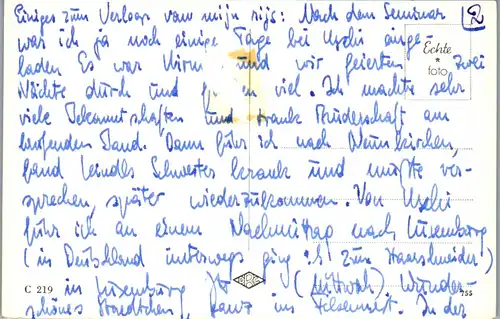 Einiges zum Verlauf vom mijn rijs: Nach dem Seminar
war ich ja noch einige Tage bei Uschi einge-
laden Es war Kirm und wir feierten zwei
Nächte durch und viel. Ich machte sehr
viele Bekanntschaften und trank Brüderschaft am
laufenden Band. Dann fuhr ich nach Neunkirchen,
fand Schwester krank und mußte ver-
sprechen, später wiederzukommen. Von Uschi
fuhr ich an einem Nachmittag nach Luxemburg
(in Deutschland unterwegs ging ich zum Haarschneider)
in Luxemburg (Mittwoch) Wunder-
schönes Städtchen, ganz ins Felsennest. In der
2
Echte
*
foto
C 219
755